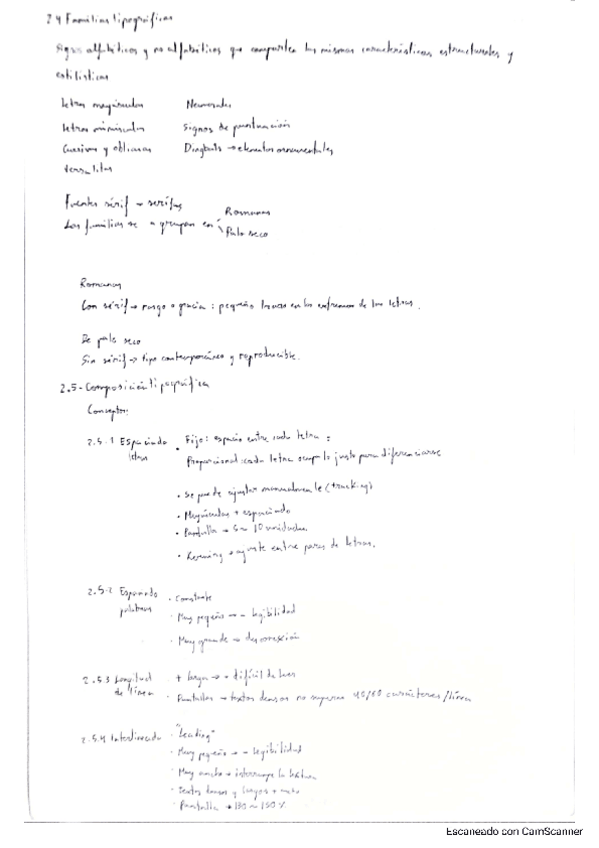 2.4 Familias tipográficas
Signos alfabéticos y no alfabéticos que comparten las mismas características estructurales y
estilísticas
Letras mayúsculas Numerales
Letras minúsculas Signos de puntuación
Cursivas y oblicuas Dingbats → elementos ornamentales
Versalitas
Fuentes sérif → serifas
Las familias se agrupan en Romanas
Palo seco
Romanas
Con sérif → rasgo o gracia : pequeño trazos en los extremos de las letras.
De palo seco
Sin sérif → tipo contemporáneo y reproducible.
2.5 - Composición tipográfica
Conceptos:
2.5.1 Espaciado letras • Fijo: espacio entre cada letra =
Proporcional: cada letra ocupa lo justo para diferenciarse
• Se puede ajustar manualmente (tracking)
• Mayúsculas + espaciado
• Pantalla → 5 ~ 10 unidades
• Kerning → ajuste entre pares de letras.
2.5.2 Espaciado palabras • Constante
• Muy pequeño → - legibilidad
• Muy grande → desconexión
2.5.3 Longitud de línea + larga → + difícil de leer
• Pantallas → textos densos no superar 40/60 carácteres/línea
2.5.4 Interlineado • "Leading"
• Muy pequeño → - legibilidad
• Muy ancho → interrumpe la lectura
• Textos densos y largos +
• Pantalla → 130 ~ 150 %
Escaneado con CamScanner